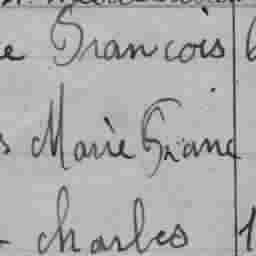 e François 6
s Marie Franc
- Charles 1